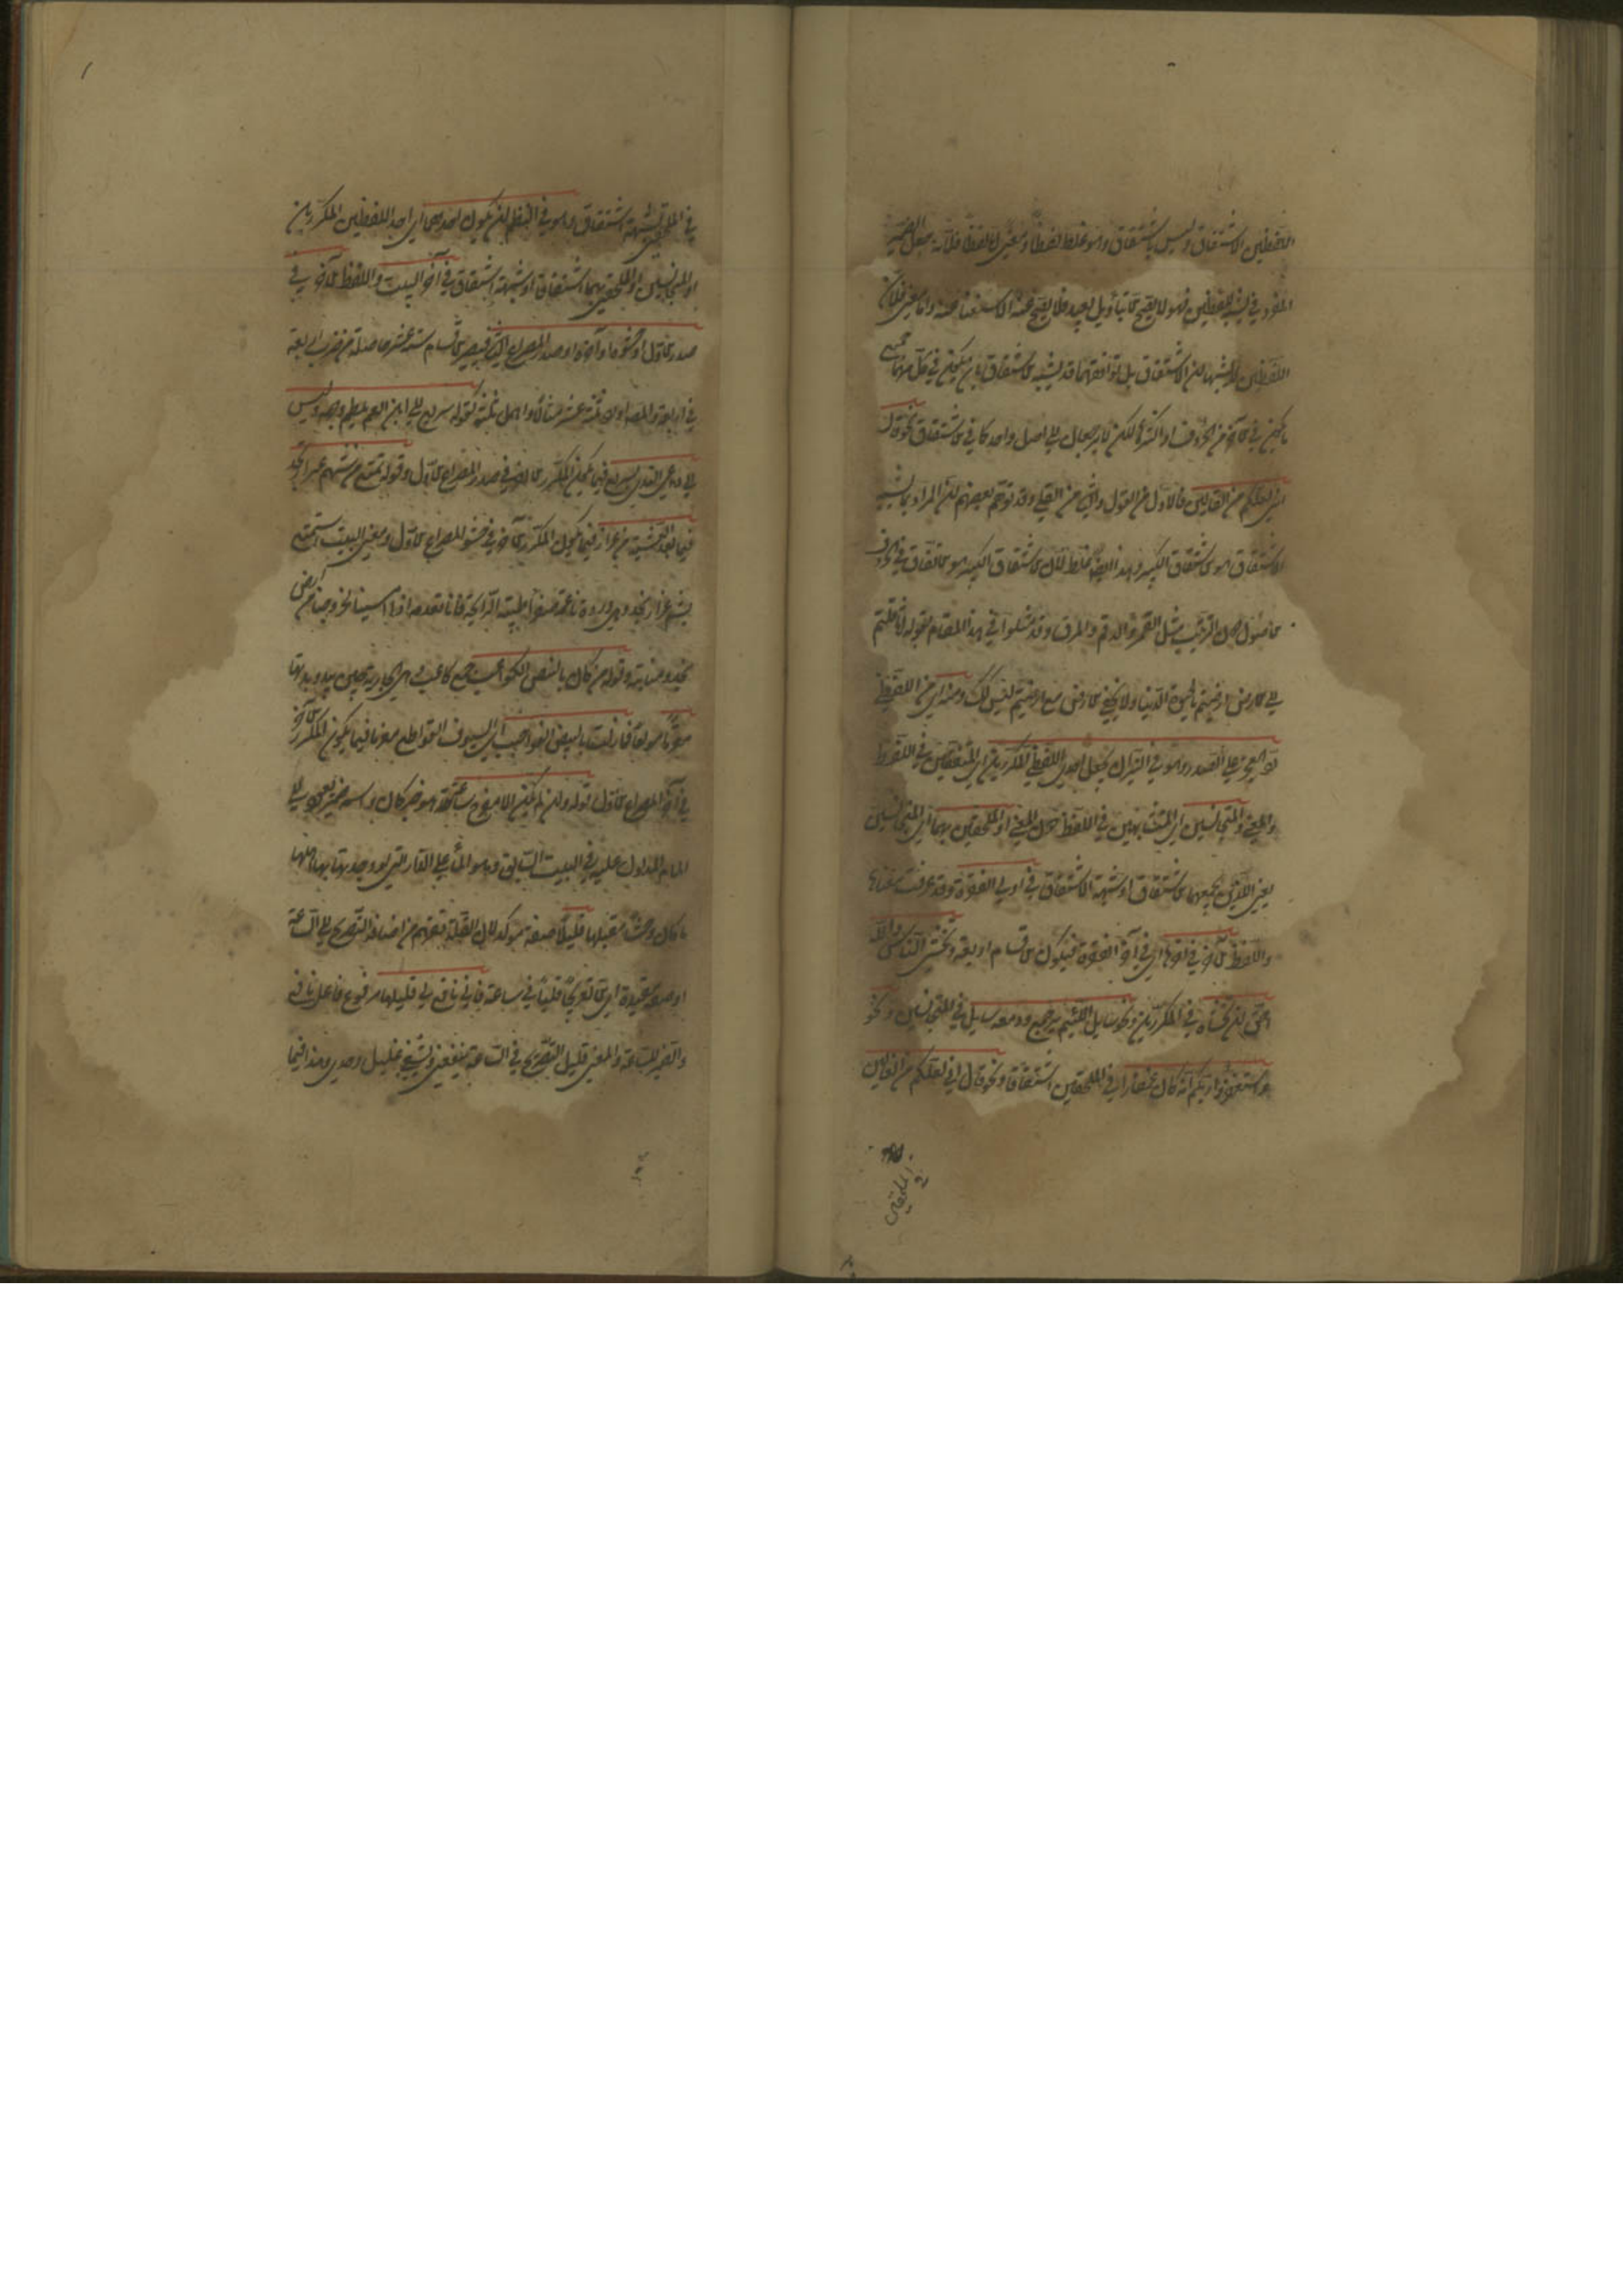 اللفظين الاشتقاق وليس باشتقاق وهو غلط لفظا ومعنى اما لفظا فلانه جعل الضمير
المفرد في يشبه للفظين فهو لا يصح الا بتأويل بعيد فلا يصح عند الاستغناء عنه واما معنى فلان
اللفظين لا يشبهان الاشتقاق بل توافقهما قد يشبه الاشتقاق بان يكون في كل منهما جميع
ما يكون في الآخر من الحروف او اكثر لكن لا يرجعان الى اصل واحد كما في الاشتقاق نحو قال
اني لعملكم من القالين فالاول من القول والثاني من القلي وقد توهم بعضهم ان المراد بما يشبه
الاشتقاق هو الاشتقاق الكبير وهذا ايضا غلط لان الاشتقاق الكبير هو الاتفاق في الحروف
الاصول دون الترتيب مثل القمر والرقم والمرق وقد مثلوا في هذا المقام بقوله اثاقلتم
الى الارض ارضيتم بالحيوة الدنيا ولا يخفى ان الارض مع ارضيتم ليس كذلك ومنه اي من اللفظي
رد العجز على الصدر وهو في النثر ان يجعل احد اللفظين المكررين اي المتفقين في اللفظ
والمعنى والمتجانسين اي المتشابهين في اللفظ دون المعنى او الملحقين بهما اي المتجانسين
يعني اللذين يجمعهما الاشتقاق او شبهة الاشتقاق في اول الفقرة وقد عرفت معناها
واللفظ الآخر في آخرها اي في آخر الفقرة فيكون الاقسام اربعة وتخشى الناس والله
احق ان تخشاه في المكررين ونحو سايل اللئيم يرجع ودمعه سايل في المتجانسين ونحو
استغفروا ربكم انه كان غفارا في الملحقين اشتقاقا ونحو قال اني لعملكم من القالين
في الملحقين
في الملحقين بشبهة اشتقاق وهو في النظم ان يكون احدهما اي احد اللفظين المكررين
او المتجانسين او الملحقين بهما اشتقاقا او شبهة اشتقاق في آخر البيت واللفظ الآخر في
صدر الاول او حشوه او آخره او صدر المصراع الثاني فيصير الاقسام ستة عشر حاصلة من ضرب اربعة
في اربعة والمصنف اورد ثلثة عشر مثالا واهمل ثلثة كقوله سريع الى ابن العم يلطم وجهه وليس
الى داعي الندى بسريع فيما يكون المكرر الآخر في صدر المصراع الاول وقوله تمتع من شميم عرار نجد
فما بعد العشية من عرار فيما يكون المكرر الآخر في حشو المصراع الاول ومعنى البيت استمتع
بشم عرار نجد وهي وردة ناعمة صفراء طيبة الرائحة فانا نعدمه اذا امسينا لخروجنا من ارض
نجد ومنابته وقوله من كان بالبيض الكواعب جمع كاعب وهي الجارية حين يبدو ثديها
مغرما مولعا فما زلت بالبيض القواضب اي السيوف القواطع مغرما فيما يكون المكرر الآخر
في آخر المصراع الاول قوله وان لم يكن الا معرج ساعة هو خبر كان واسمه ضمير يعود الى
الالمام المدلول عليه في البيت السابق وهو الما على الدار التي لو وجدتها بها اهلها
ما كان وحشا مقيلها قليلا صفة مؤكدة لان القلة تفهم من اضافة التعريج الى الساعة
او صفة مقيدة اي الا تعريجا قليلا في ساعة فاني نافع لي قليلها مرفوع فاعل نافع
والضمير للساعة والمعنى قليل التعريج في الساعة ينفعني ويشفي غليل وجدي وهذا فيما